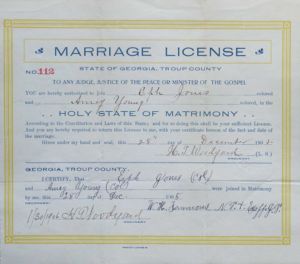 MARRIAGE LICENSE
STATE OF GEORGIA, TROUP COUNTY
NO. 112
TO ANY JUDGE, JUSTICE OF THE PEACE OR MINISTER OF THE GOSPEL
YOU are hereby authorized to join Eph Jones colored
and Amey Young colored, in the
HOLY STATE OF MATRIMONY.
According to the Constitution and Laws of this State; and for so doing this shall be your sufficient License. And
you are hereby required to return this License to me, with your certificate hereon of the fact and date of the
marriage.
Given under my hand and seal, this 28 December
(L. S.)
GEORGIA, TROUP COUNTY.
I CERTIFY, That Eph Jones (Col)
and Amey Young (Col) were joined in Matrimony
by me this 28 Dec